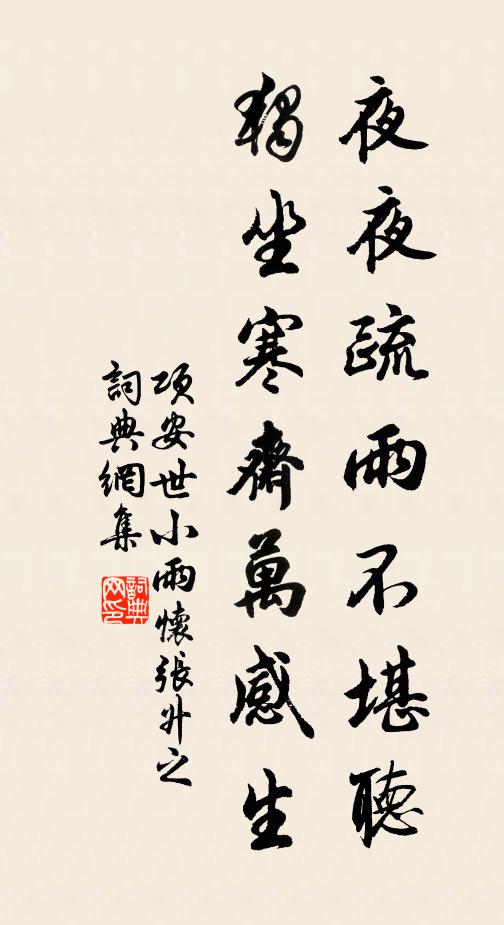 夜夜疏雨不堪聽
獨坐寒齋萬感生
項安世小雨懷張升之
詞典網集
詞典網印